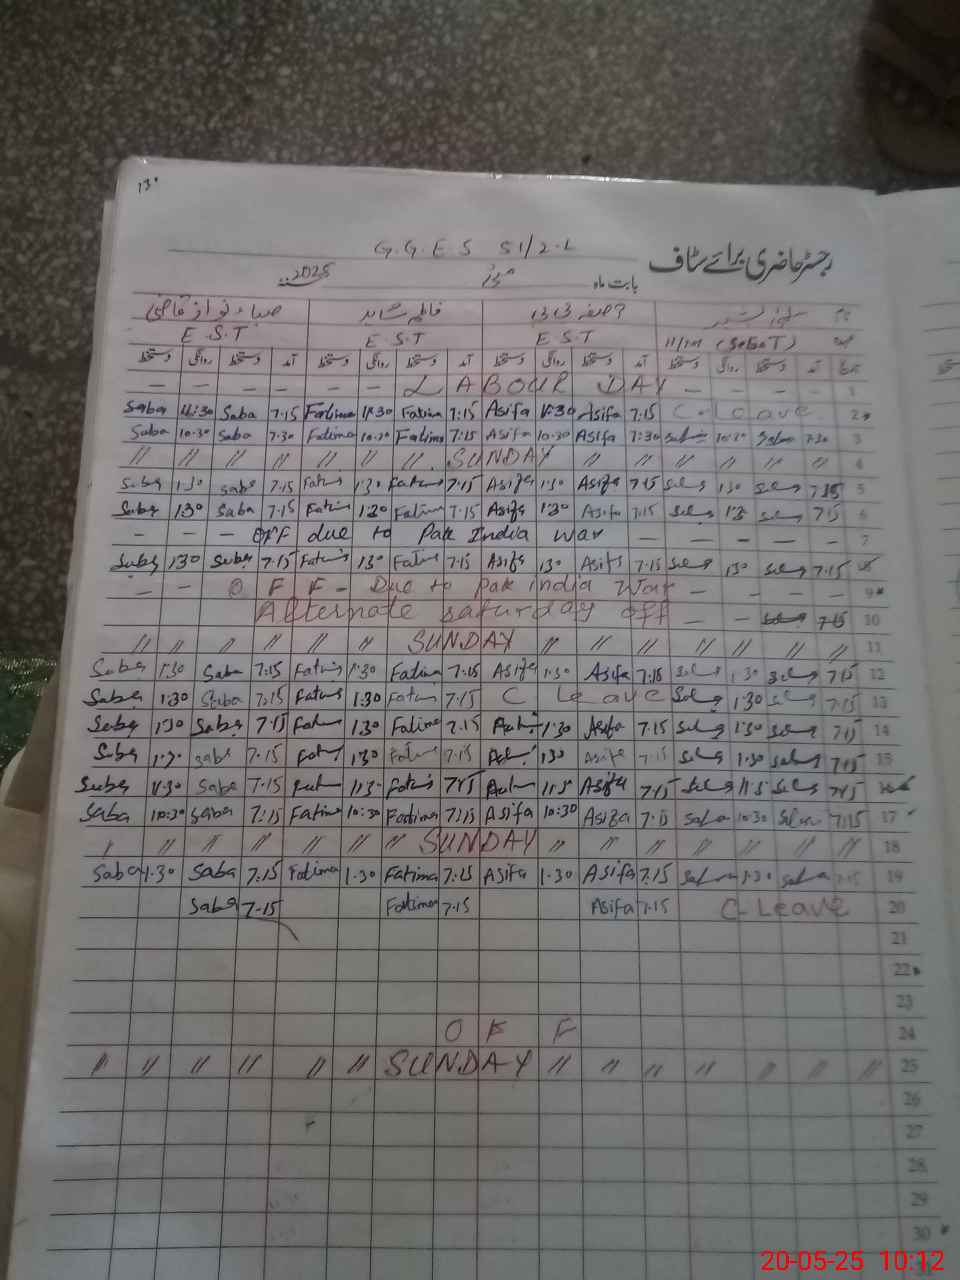 130
G.G.E.S 51/2.L
رجسٹر حاضری برائے سٹاف
بابت ماہ
2025
E.S.T E.S.T E.S.T (SESET)
دستخط روانگی دستخط آمد دستخط روانگی دستخط آمد دستخط روانگی دستخط آمد دستخط روانگی دستخط آمد
— — — — — — LABOUR DAY — — — — 1
Saba 11:30 Saba 7.15 Fatima 11:30 Fatima 7:15 Asifa 11:30 Asifa 7.15 C. Leave 2
Saba 10.30 Saba 7.30 Fatima 10.30 Fatima 7:15 Asifa 10.30 Asifa 7:30 10.30 7.30 3
// // // // // // // SUNDAY // // // // // // 4
Saba 1.30 Saba 7.15 Fatima 1:30 Fatima 7.15 Asifa 1.30 Asifa 7.15 1.30 7.15 5
Saba 1.30 Saba 7.15 Fatima 1:30 Fatima 7.15 Asifa 1.30 Asifa 7.15 1.30 7.15 6
— — — OFF due to Pak India war — — — — — 7
Saba 1.30 Saba 7.15 Fatima 1.30 Fatima 7.15 Asifa 1.30 Asifa 7.15 1.30 7.15 8
— — OFF - Due to Pak india War — — — — 9
Alternate saturday off — — 7.15 10
// // // // // SUNDAY // // // // // // 11
Saba 1:30 Saba 7:15 Fatima 1:30 Fatima 7.15 Asifa 1.30 Asifa 7.15 1.30 7.15 12
Saba 1:30 Saba 7:15 Fatima 1.30 Fatima 7.15 C Leave 1.30 7.15 13
Saba 1:30 Saba 7.15 Fatima 1.30 Fatima 7.15 1.30 Asifa 7.15 1.30 7.15 14
Saba 1.30 Saba 7.15 Fatima 1.30 Fatima 7.15 1.30 Asifa 7.15 1.30 7.15 15
Saba 11.30 Saba 7.15 Fatima 11.30 Fatima 7.15 11.30 Asifa 7.15 11.30 7.15 16
Saba 10:30 Saba 7:15 Fatima 10:30 Fatima 7:15 Asifa 10:30 Asifa 7.15 10.30 7.15 17
// // // // // // SUNDAY // // // // // // 18
Saba 1.30 Saba 7.15 Fatima 1.30 Fatima 7.15 Asifa 1.30 Asifa 7.15 1.30 7.15 19
Saba 7-15 Fatima 7.15 Asifa 7.15 C. Leave 20
21
22
23
OFF 24
// // // // // // SUNDAY // // // // // // // 25
26
27
28
29
30
20-05-25 10:12